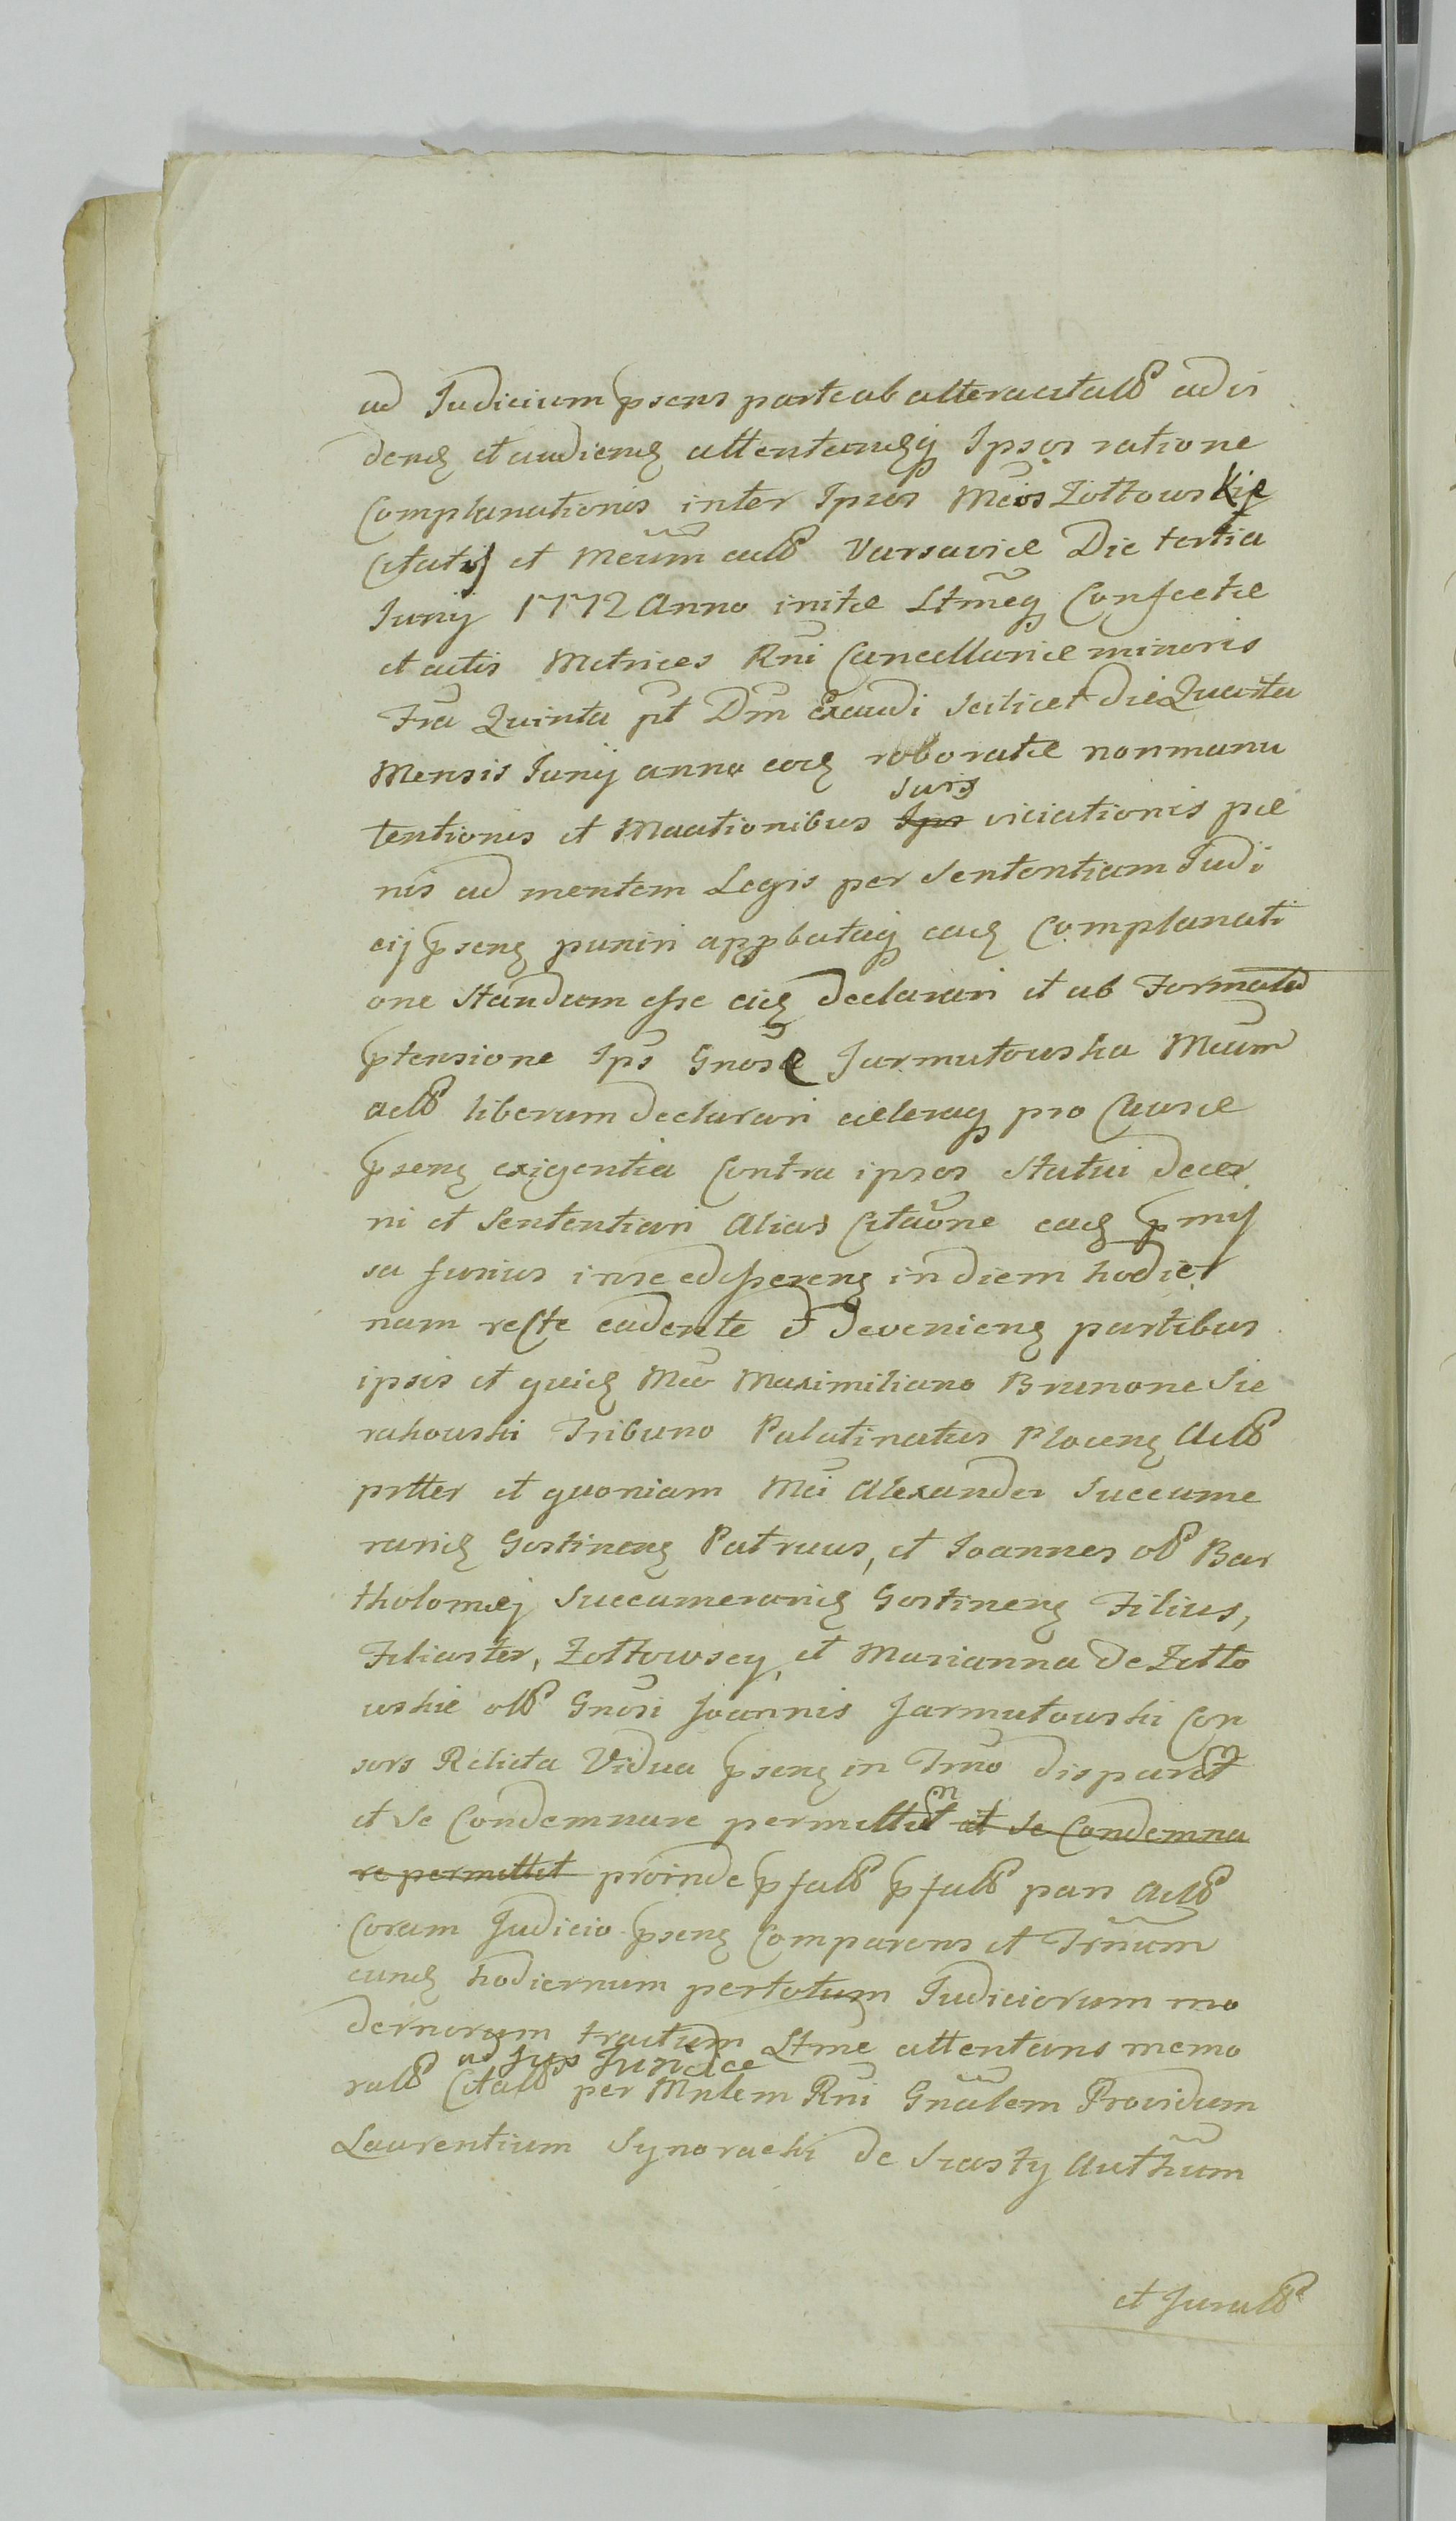 ad Judicium psens parte ab altera citatß ad vi
denđ et audienđ attentandąq Ipsos ratione
Complanationis inter Ipsos Mcios Zołtowskje
Citatis et Mcium actß Varsaviæ Die tertia
Junij 1772 Anno initæ Ltmeq Confectæ
et actis Metrices Rni Cancellariæ minoris
Fra Quinta pt Dm Exaudi scilicet die Quarta
Mensis Junij anno eođ roboratæ non manu
tentionis et Mactionibus Ips Juris viciationis pæ
nis ad mentem Legis per Sententiam Judi
cij psenş puniri appbataq eađ Complanati
one standum esse eiđ declarari et ab Formata
ptensione Ips Gnosæ Jarmułowska Mcium
actß liberum declarari cæteraq pro Causæ
psenş exigentia Contra ipsos statui decer
ni et Sententiari Alias Citaone eađ pmis
sa fusius in se edisserenş in diem hodier
nam recte cadente ð devenienş partibus
ipsis et quiđ Mco Maximiliano Brunone Sie
rakowski Tribuno Palatinatus Plocenş Actß
prtter et quoniam Mci Alexander Succame
rariđ Gostinenş Patruus, et Joannes oß Bar
tholomæj Succamerariđ Gostinenş Filius,
Filiaster, Zołtowscy, et Marianna de Zołto
wskie olß Gnosi Joannis Jarmułowski Con
sors Relicta Vidua psenş in Trno disparet
et se Condemnare permittit et se Condemna
re permittit proinde pfatß pfatß pars Actß
Coram Judicio psenş Comparens et Trnum
eunđ hodiernum per totum Judiciorum mo
dernorum tractum Ltme attentans memo
ratß Citatß ad Jus Juridice per Mnlem Rni Gnalem Providum
Laurentium Synoracki de Srasty Authum
et Juratß